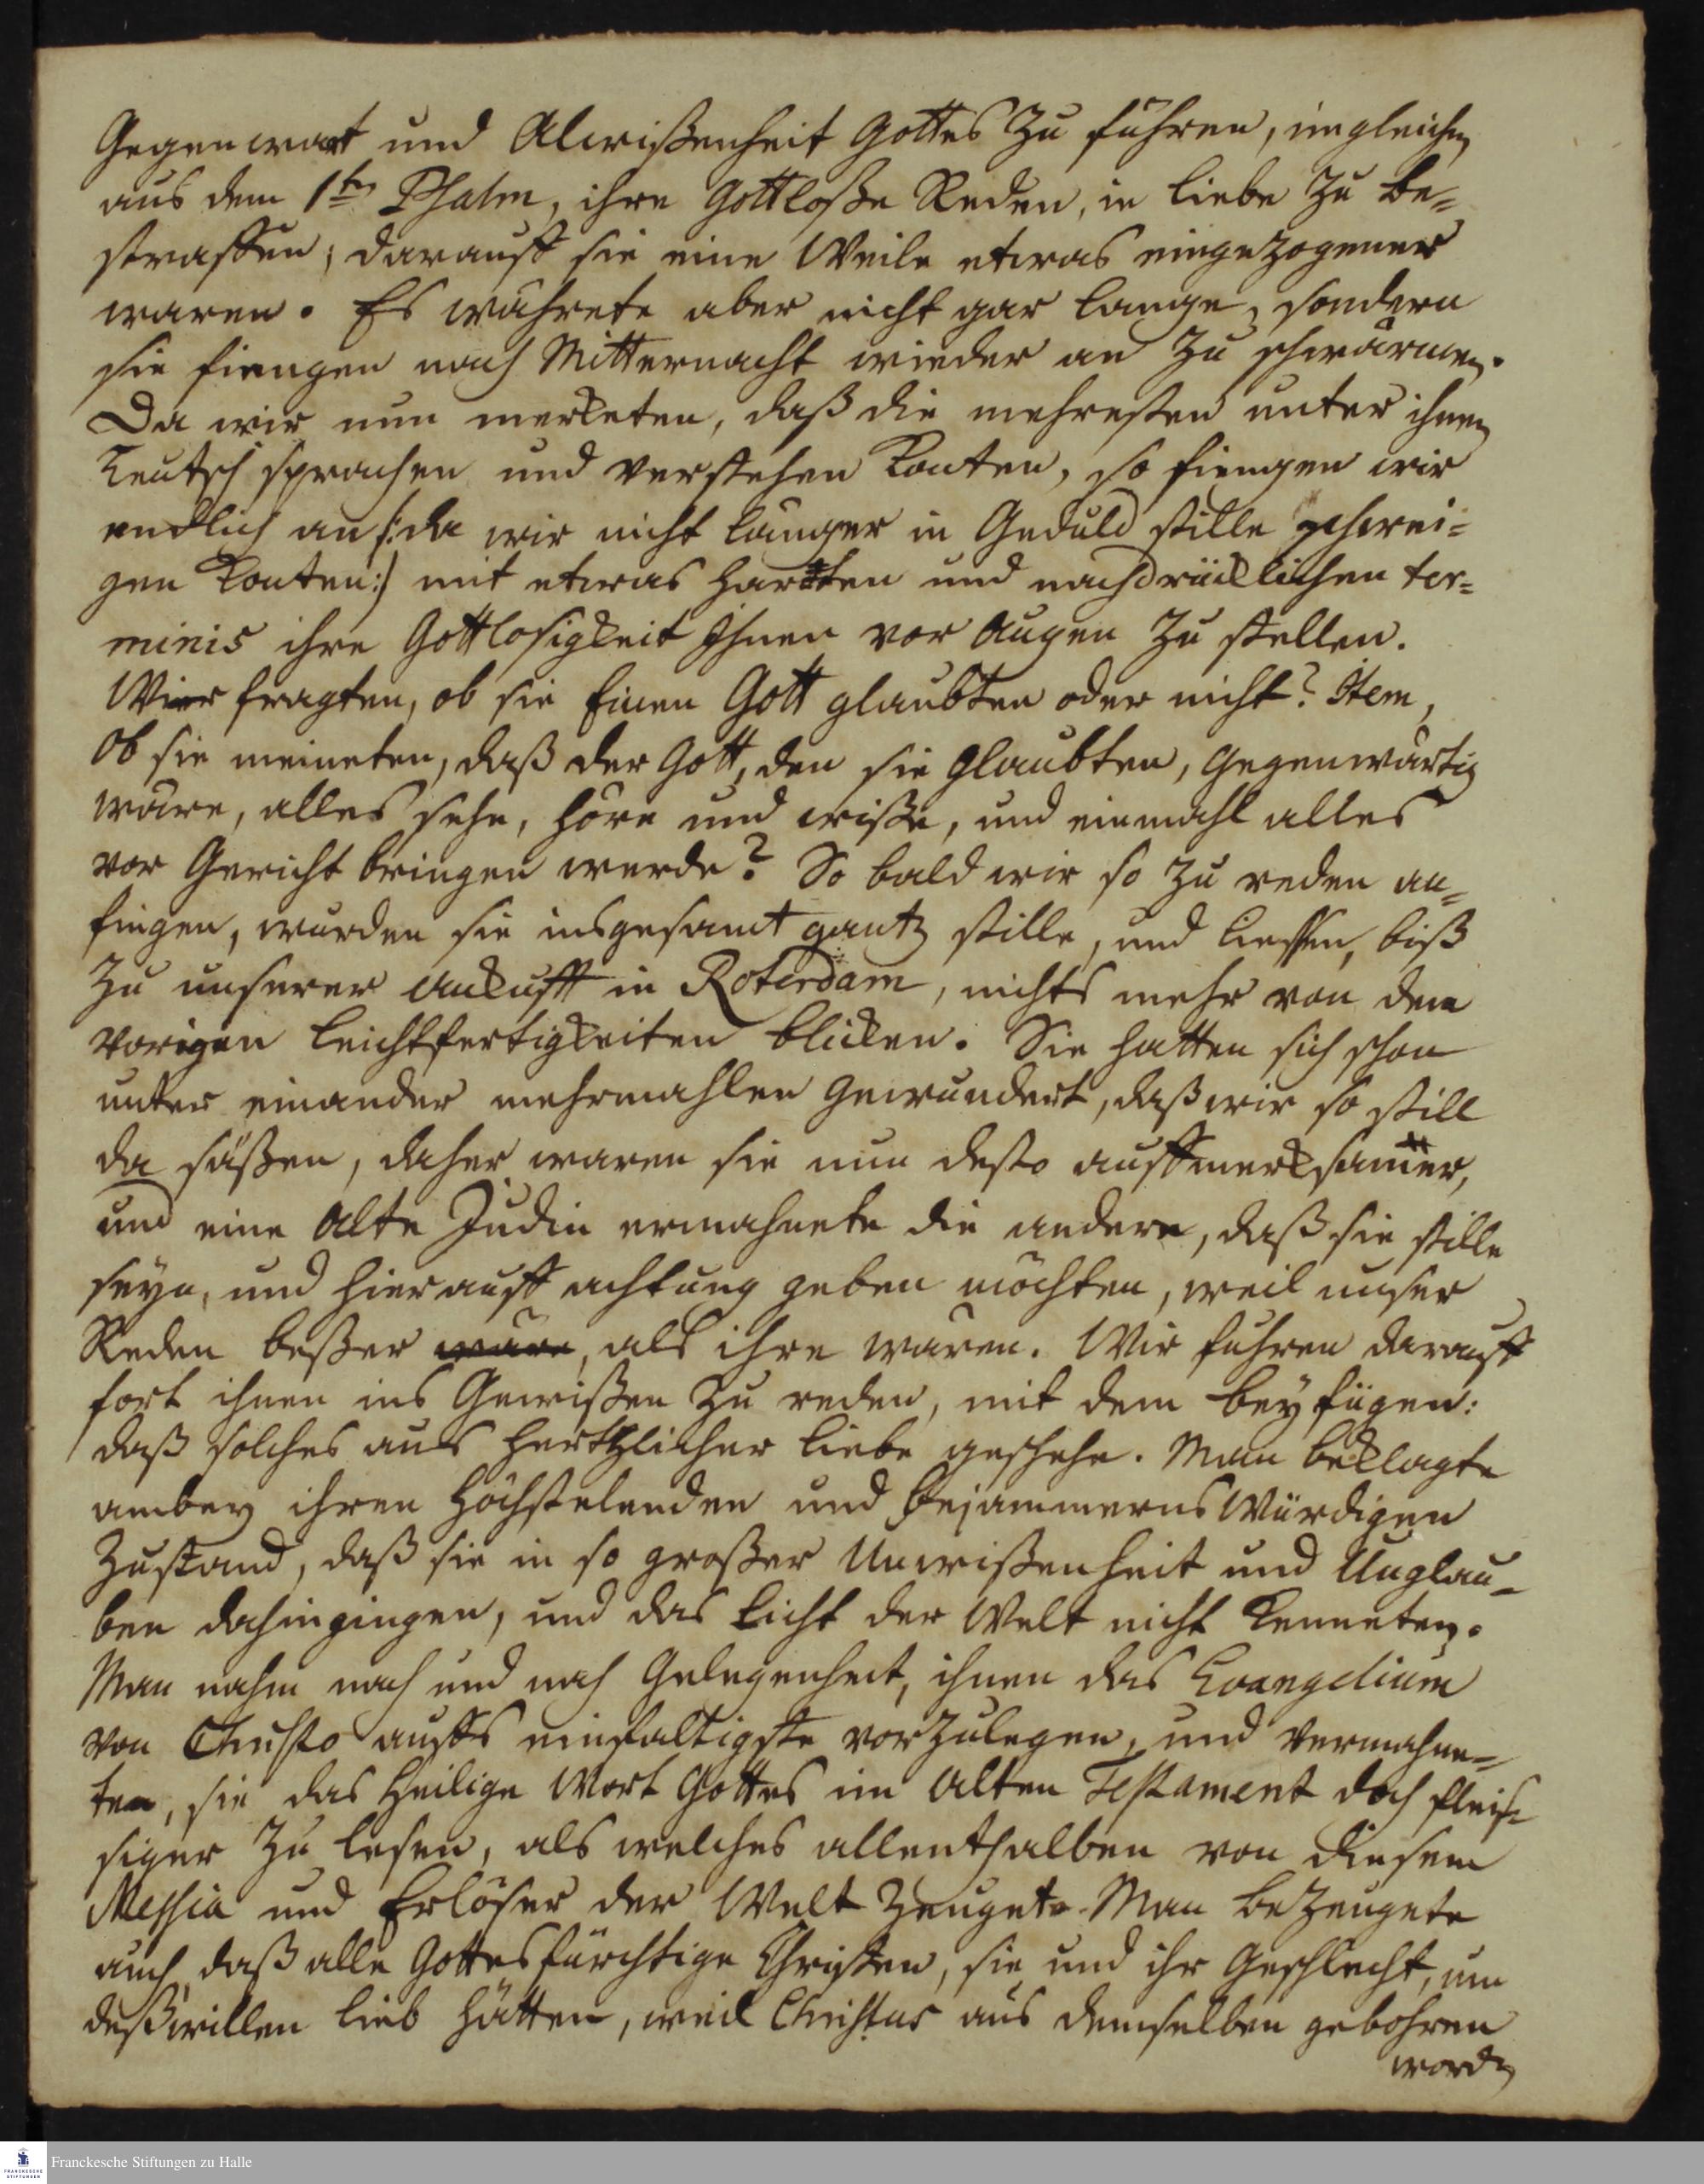 Gegenwart und Alwißenheit Gottes zu führen, imgleichen
aus dem 1ten Psalm, ihre Gottloße Reden, in Liebe zu be=
straffen; darauff sie eine Weile etwas eingezogener
waren. Es währete aber nicht gar lange, sondern
sie fiengen nach Mitternacht wieder an zu schwärmen.
Da wir nun merketen, daß die mehresten unter ihnen
Teutsch sprachen und verstehen konten, so fiengen wir
endlich an /: da wir nicht länger in Geduld stille schwei=
gen konten :/ mit etwas harten und nachdrücklichen ter=
minis ihre Gottlosigkeit Ihnen vor Augen zu stellen.
Wir fragten, ob sie Einen Gott glaubten oder nicht? Item,
Ob sie meineten, daß der Gott, den sie glaubten, gegenwärtig
wäre, alles sehe, höre und wiße, und einmahl alles
vor Gericht bringen werde? So bald wir so zu reden an=
fingen, wurden sie insgesamt gantz stille, und ließen, biß
zu unserer Ankufft in Roterdam, nichts mehr von den
vorigen Leichtfertigkeiten blicken. Sie hatten sich schon
unter einander mehrmahlen gewundert, daß wir so still
da säßen, daher waren sie nun desto auffmerksamer,
und eine alte Jüdin ermahnete die andern, daß sie stille
seyn, und hierauff achtung geben möchten, weil unser
Reden beßer wäre, als ihre wären. Wir fuhren darauff
fort ihnen ins Gewißen zu reden, mit dem beyfügen:
daß solches aus hertzlicher Liebe geschehe. Man beklagte
anbey ihren höchstelenden und bejammernswürdigen
Zustand, daß sie in so großer Unwißenheit und Unglau=
ben dahingingen, und das Licht der Welt nicht kenneten.
Man nahm nach und nach Gelegenheit, ihnen das Evangelium
von Christo auffs einfältigste vorzulegen, und vermahne=
ten, sie das Heilige Wort Gottes im Alten Testament doch fleis=
siger zu lesen, als welches allenthalben von diesem
Messia und Erlöser der Welt zeugete. Man bezeugete
auch, daß alle Gottesfürchtige Christen, sie und ihr Geschlecht, um
deßwillen lieb hätten, weil Christus aus demselben gebohren
worden
Franckesche Stiftungen zu Halle
FRANCKESCHE
STIFTUNGEN